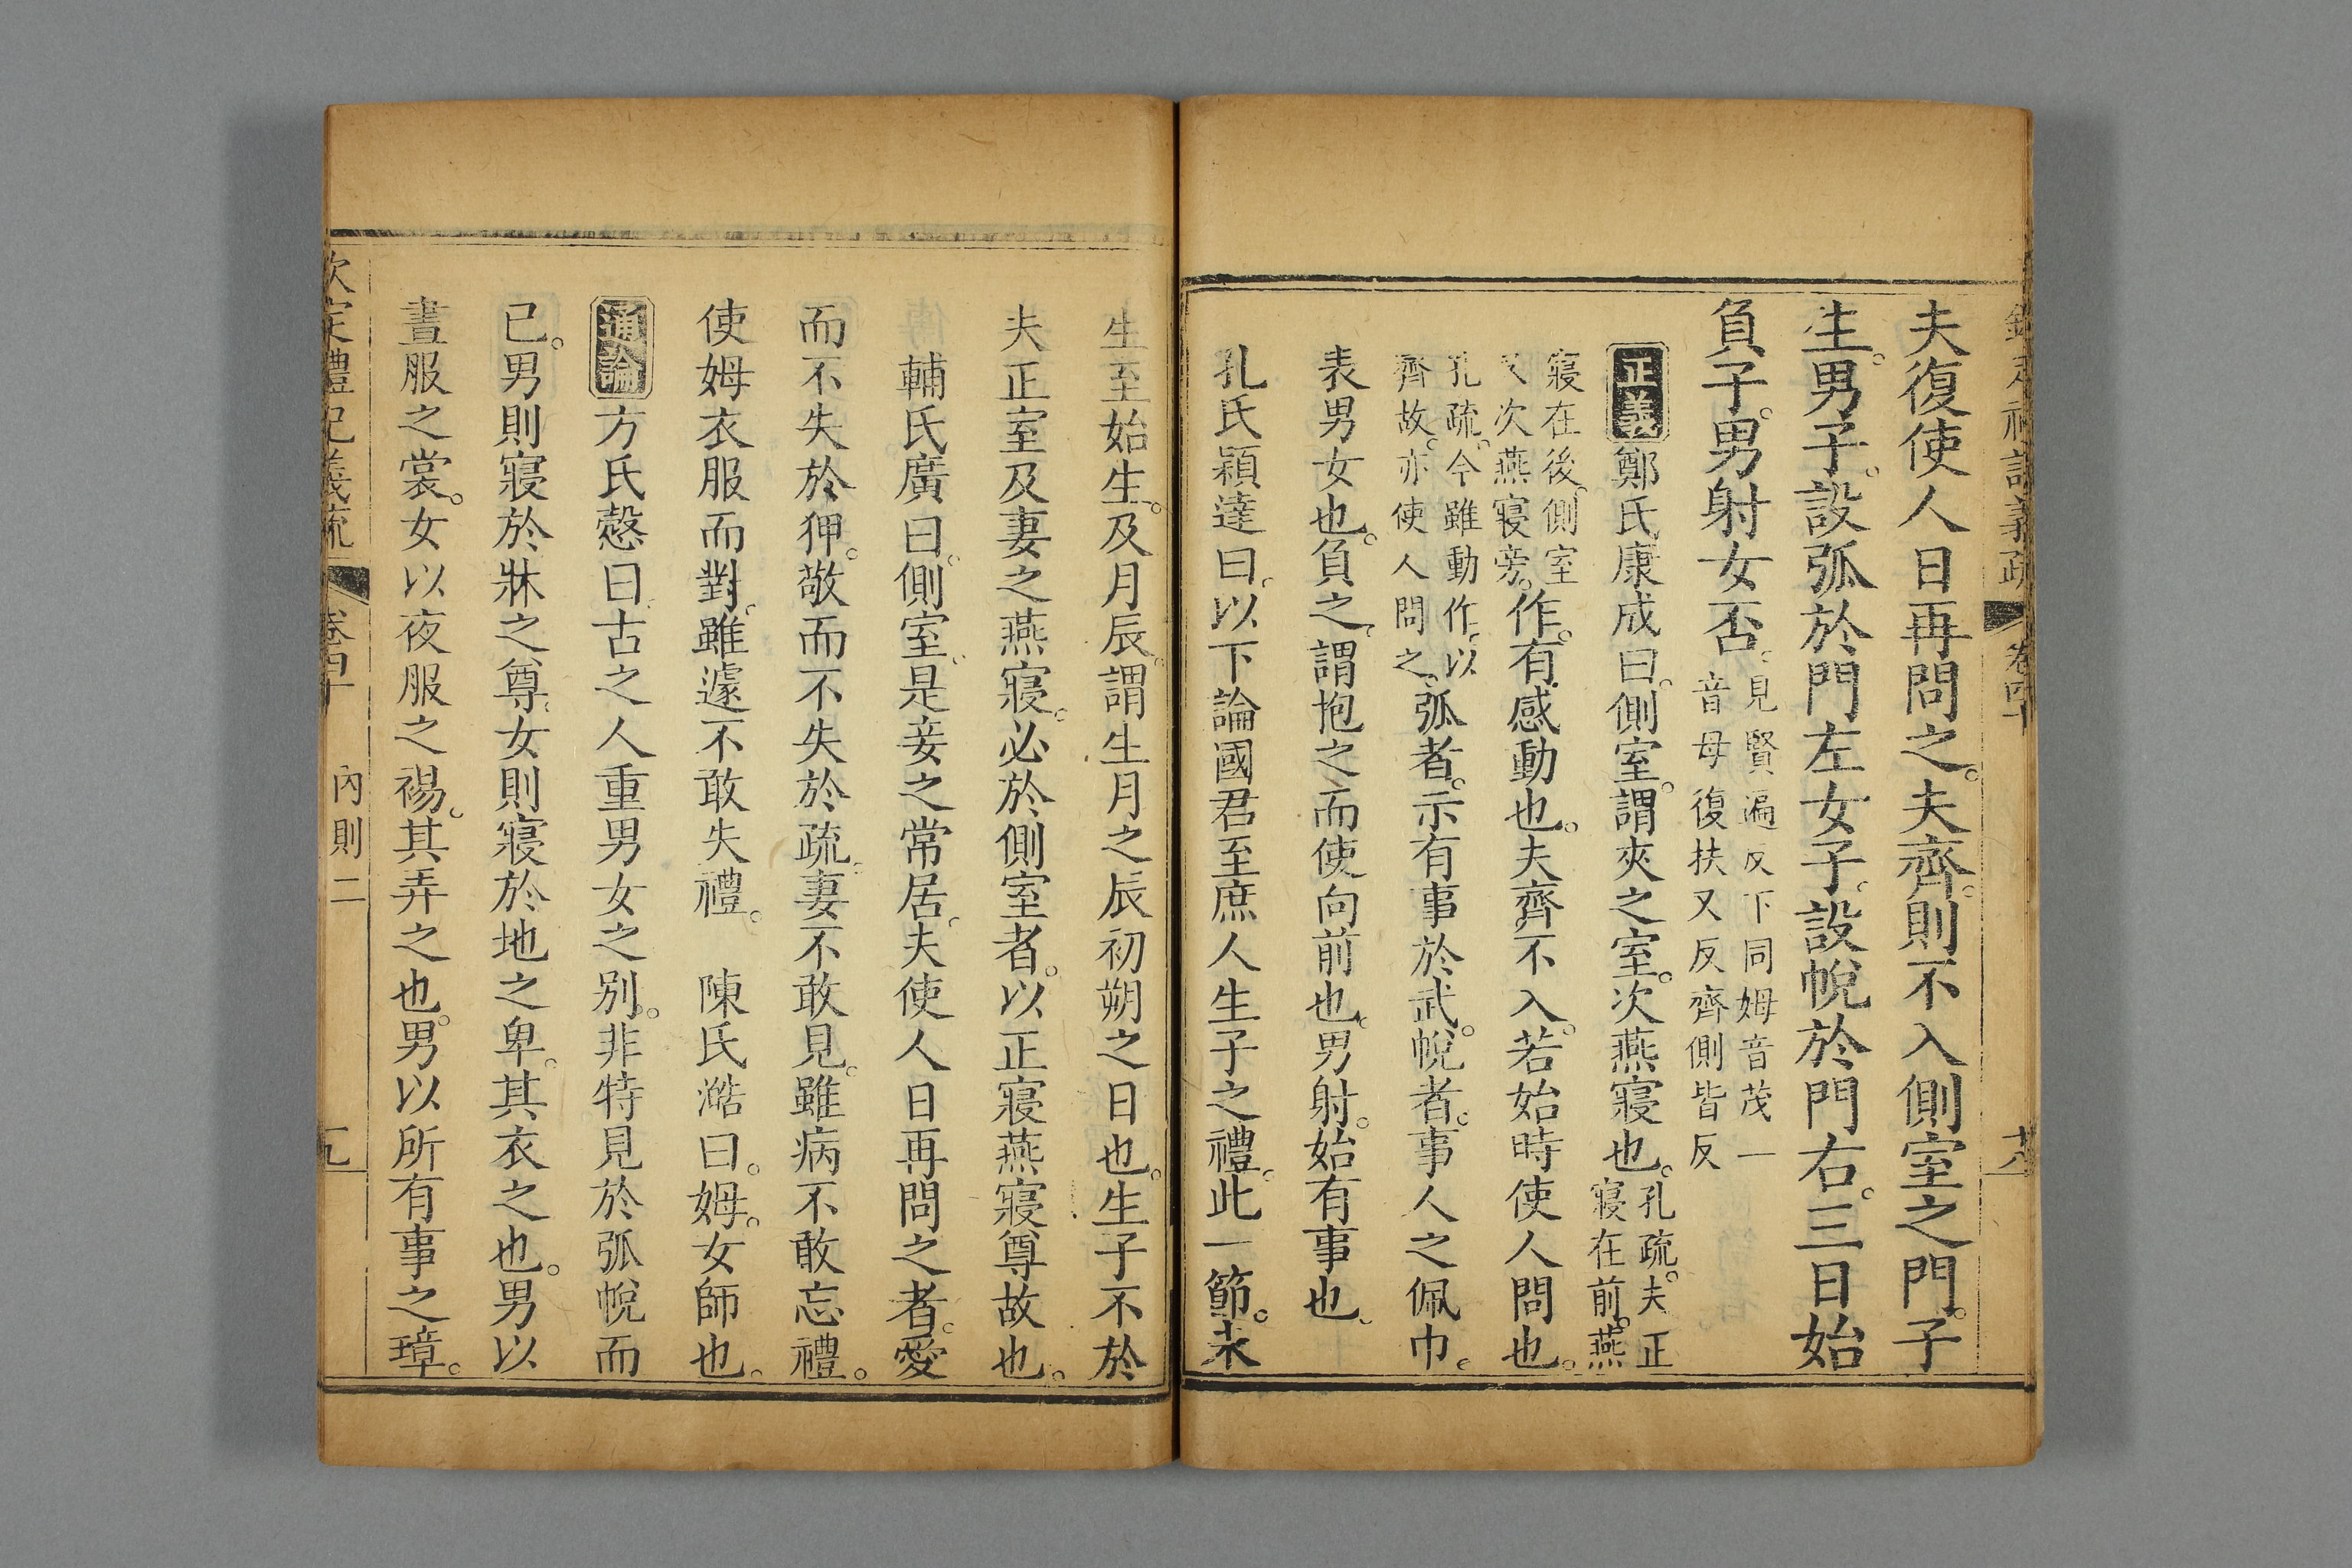 夫復使人日再問之。夫齊。則不入側室之門。子
生。男子。設弧於門左女子。設帨於門右。三日始
負子。男射女否。見賢遍反下同姆音茂一
音母復扶又反齊側皆反
正義鄭氏康成曰。側室。謂夾之室。次燕寢也。孔疏。夫正
寢在前。燕
寢在後。側室
又次燕寢旁。作。有感動也。夫齊不入。若始時使人問也。
孔疏。今雖動作。以
齊故。亦使人問之。弧者。示有事於武。帨者。事人之佩巾。
表男女也。負之。謂抱之而使向前也。男射。始有事也。
孔氏穎達曰。以下論國君至庶人生子之禮。此一節。未
生至始生。及月辰。謂生月之辰初朔之日也。生子不於
夫正室及妻之燕寢。必於側室者。以正寢燕寢尊故也。
輔氏廣曰。側室。是妾之常居。夫使人日再問之者。愛
而不失於狎。敬而不失於疏。妻不敢見。雖病不敢忘禮。
使姆衣服而對。雖遽不敢失禮。 陳氏澔曰。姆。女師也。
通論方氏慤曰。古之人重男女之別。非特見於弧帨而
已。男則寢於牀之尊。女則寢於地之卑。其衣之也。男以
晝服之裳。女以夜服之裼。其弄之也。男以所有事之璋。
欽定禮記義疏 卷四十 內則二